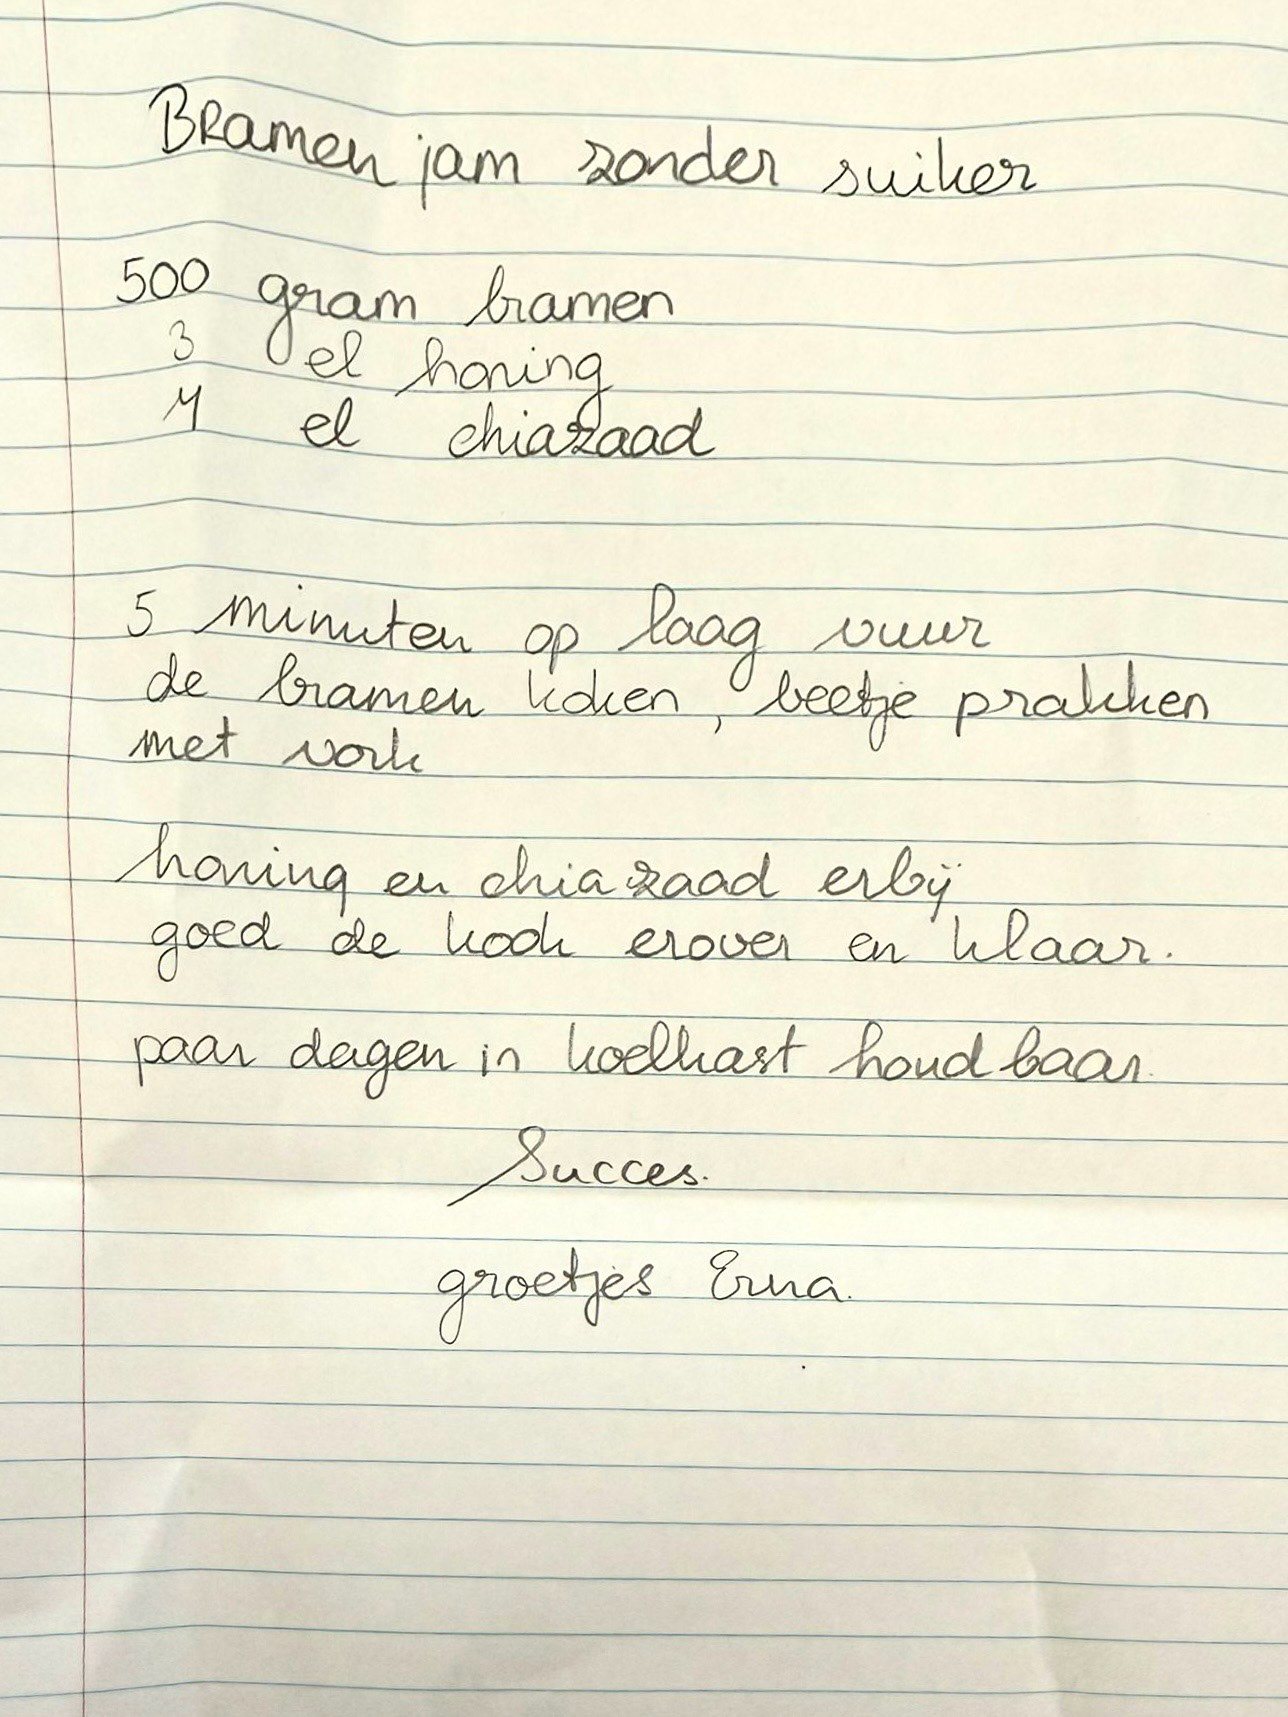 Bramen jam zonder suiker
500 gram bramen
3 el honing
4 el chiazaad
5 minuten op laag vuur
de bramen koken, beetje prakken
met vork
honing en chiazaad erbij
goed de kook erover en klaar.
paar dagen in koelkast houdbaar.
Succes.
groetjes Erna.